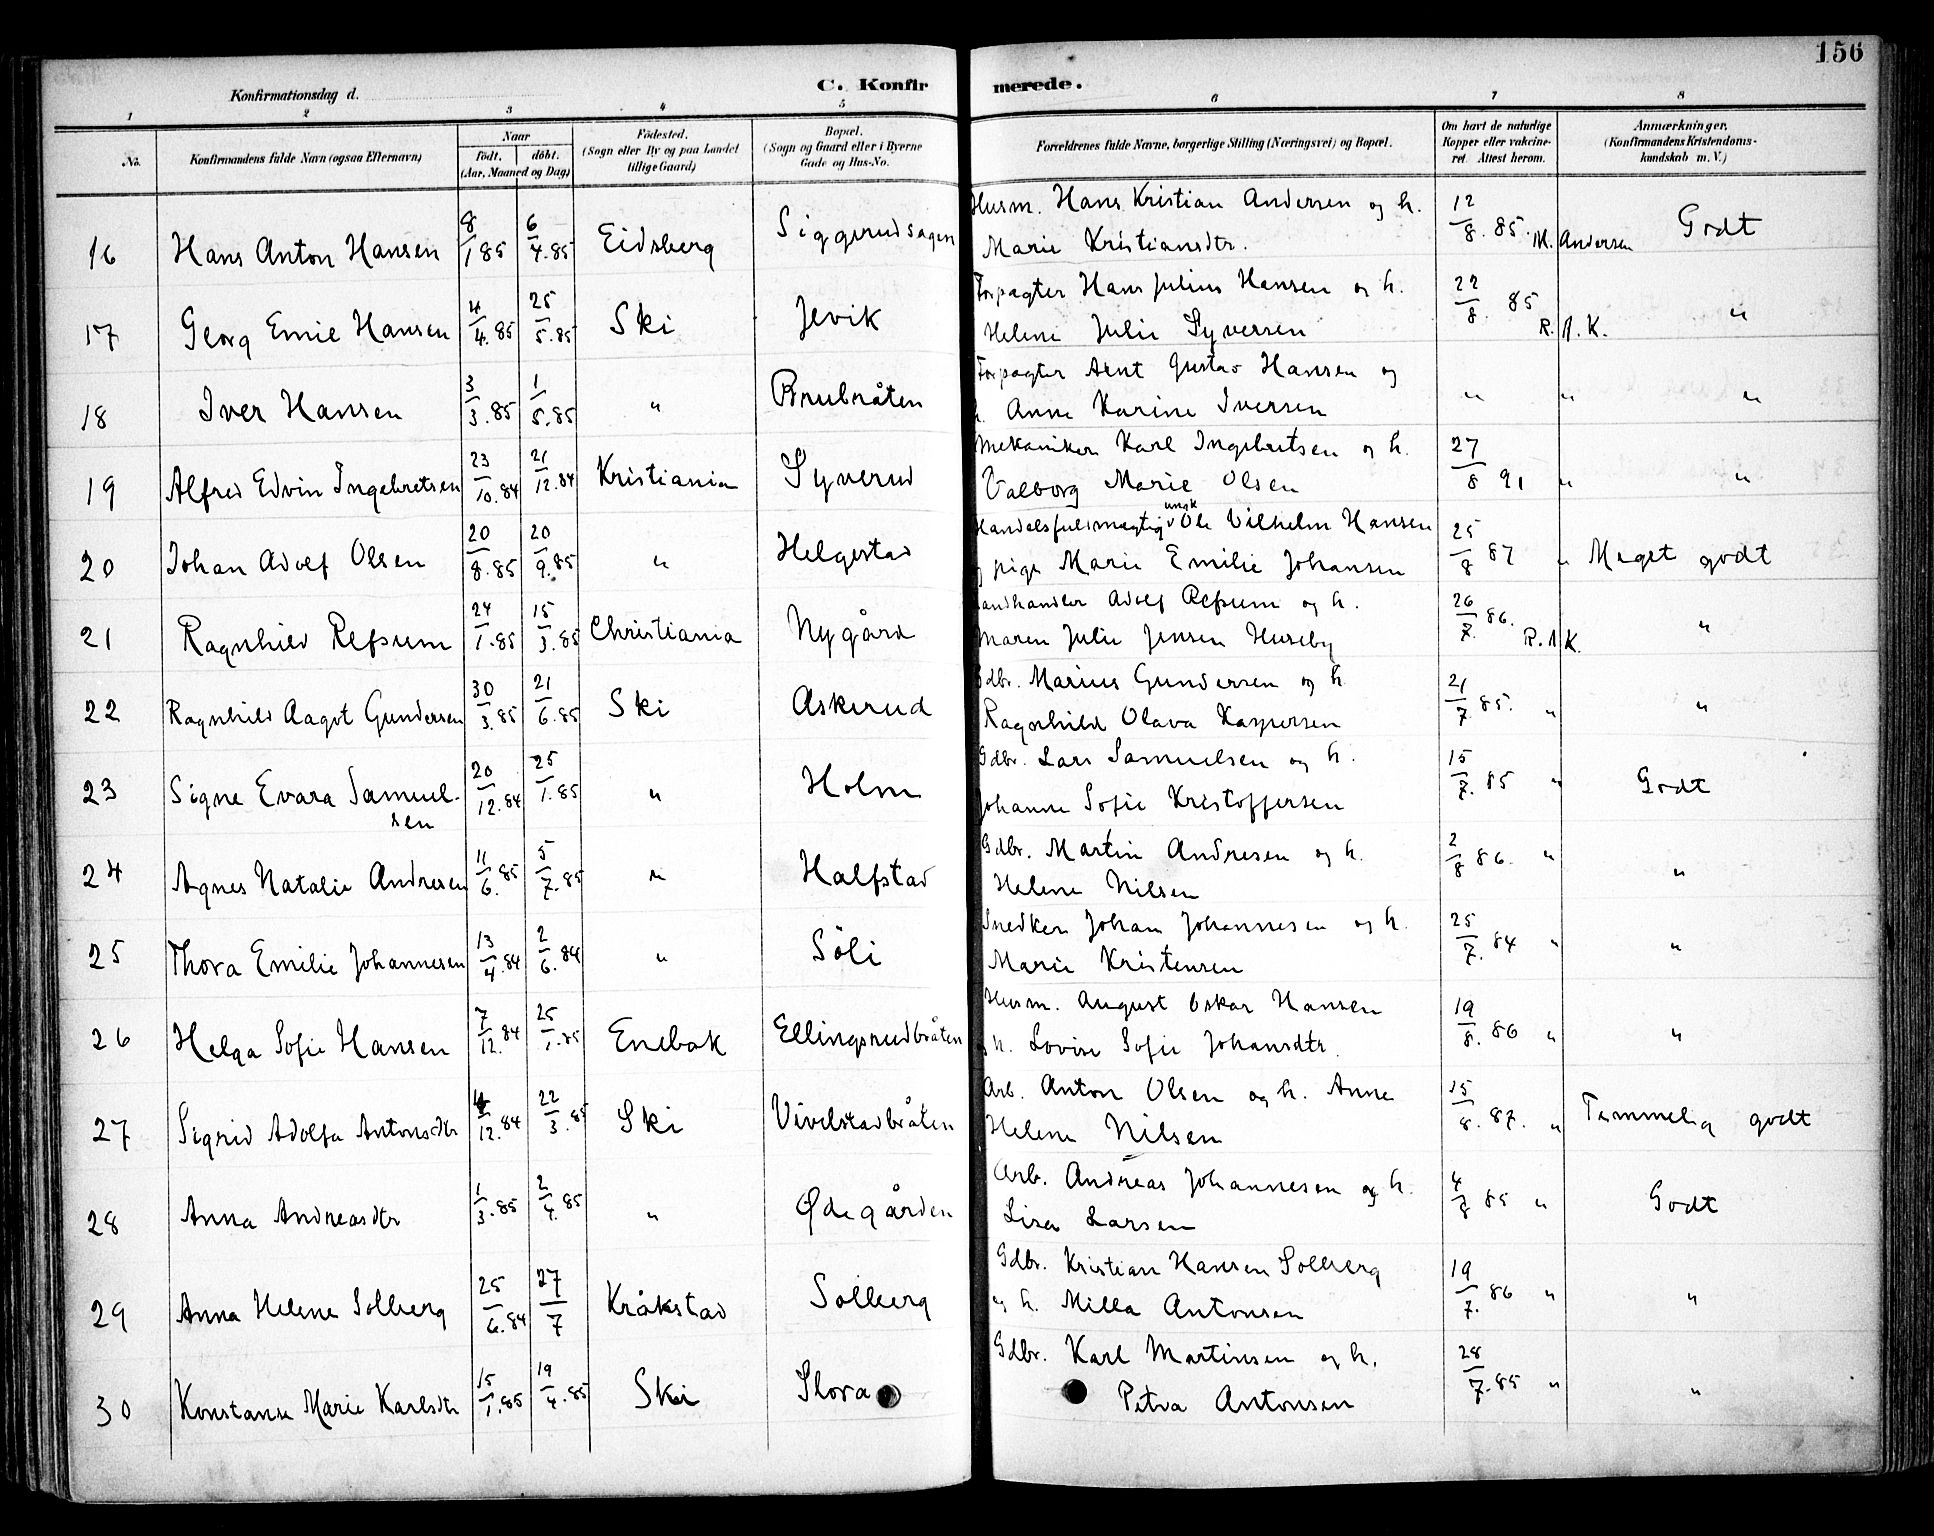 156
Konfirmationsdag d.
C. Konfirmerede.
1 2 3 4 5 6 7 8
No.
Konfirmandens fulde Navn (ogsaa Efternavn)
Naar
födt. döbt.
(Aar, Maaned og Dag)
Födested.
(Sogn eller By og paa Landet
tillige Gaard)
Bopæl.
(Sogn og Gaard eller i Byerne
Gade og Hus-No.
Forældrenes fulde Navne, borgerlige Stilling (Næringsvei) og Bopæl.
Om havt de naturlige
Kopper eller vakcineret. Attest herom.
Anmærkninger.
(Konfirmandens Kristendomskundskab m. V.)
16 Hans Anton Hansen 8/1 85 6/4.85 Eidsberg Siggerudsagen Husm. Hans Kristian Andersen og h.
Marie Kristiansdtr. 12/8. 85. M. Andersen Godt
17 Georg Emil Hansen 4/4.85 25/5.85 Ski Jevik Forpagter Hans Julius Hansen og h.
Helene Julie Syversen 22/8. 85 R. A. K. "
18 Iver Hansen 3/3.85 1/5.85 " Brubråten Forpagter Arnt Gustav Hansen og
h. Anne Karine Iversen " " "
19 Alfred Edvin Ingebretsen 23/10.84 21/12.84 Kristiania Syverud Mekaniker Karl Ingebretsen og h.
Valborg Marie Olsen 27/8 91 " "
20 Johan Adolf Olsen 20/8.85 20/9.85 " Helgestad Handelsfuldmægtig ungk Ole Vilhelm Hansen
og pige Marie Emilie Johansen 25/8 87 " Meget godt
21 Ragnhild Refsum 24/1.85 15/3.85 Christiania Nygård Landhandler Adolf Refsum og h.
Maren Julie Jensen Huseby 26/7. 86. R. A. K. "
22 Ragnhild Aagot Gundersen 30/3.85 21/6.85 Ski Askerud Gdbr. Marius Gundersen og h
Ragnhild Olava Kaspersen 21/7 85. " "
23 Signe Evara Samuelsen 20/12.84 25/1.85 " Holm Gdbr. Lars Samuelsen og h.
Johanne Sofie Kristoffersen 15/7. 85 " Godt
24 Agnes Natalie Andresen 11/6. 85 5/7.85 " Halfstad Gdbr. Martin Andresen og h.
Helene Nilsen 2/8 86. " "
25 Thora Emilie Johannesen 13/4.84 2/6.84 " Söli Snedker Johan Johannesen og h.
Marie Kristensen 25/7. 84 " "
26 Helga Sofie Hansen 7/12.84 25/1.85 Enebak Ellingsrudbråten Husm. August Oskar Hansen
h. Lovise Sofie Johansdtr. 19/8. 86 " "
27 Sigrid Adolfa Antonsdtr 4/12.84 22/3.85 Ski Vivelstadbråten Arb. Anton Olsen og h. Anne
Helene Nilsen 15/8. 87. " Temmelig godt
28 Anna Andreasdtr 1/3.85 2/4.85 " Ødegården Arb. Andreas Johannesen og h.
Lisa Larsen 4/8 85 " Godt
29 Anna Helene Solberg 25/6.84 27/7 Kråkstad Solberg Gdbr. Kristian Hansen Solberg
og h. Milla Antonsen 19/7. 86 " "
30 Konstanse Marie Karlsdtr 15/1.85 19/4.85 Ski Slora Gdbr. Karl Martinsen og h.
Petra Antonsen 28/7.85 " "